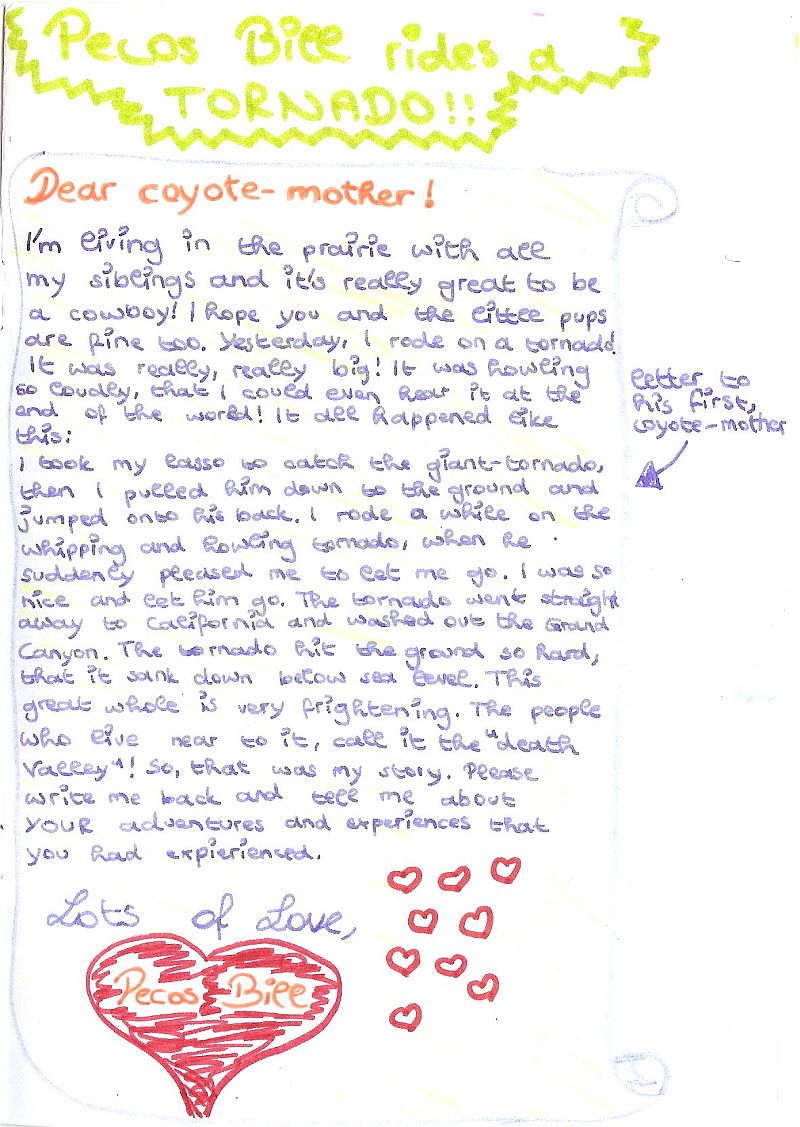 Pecos Bill rides a
TORNADO!!
Dear coyote-mother!
I'm living in the prairie with all
my siblings and it's really great to be
a cowboy! I hope you and the little pups
are fine too. Yesterday, I rode on a tornado!
It was really, really big! It was howling
so loudly, that I could even hear it at the
end of the world! It all happened like
this:
I took my lasso to catch the giant-tornado,
then I pulled him down to the ground and
jumped onto his back. I rode a while on the
whipping and howling tornado, when he
suddenly pleased me to let me go. I was so
nice and let him go. The tornado went straight
away to California and washed out the Grand
Canyon. The tornado hit the ground so hard,
that it sank down below sea level. This
great whole is very frightening. The people
who live near to it, call it the "death
Valley"! So, that was my story. Please
write me back and tell me about
YOUR adventures and experiences that
you had expierienced.
Lots of Love,
Pecos-Bill
letter to
his first,
coyote-mother